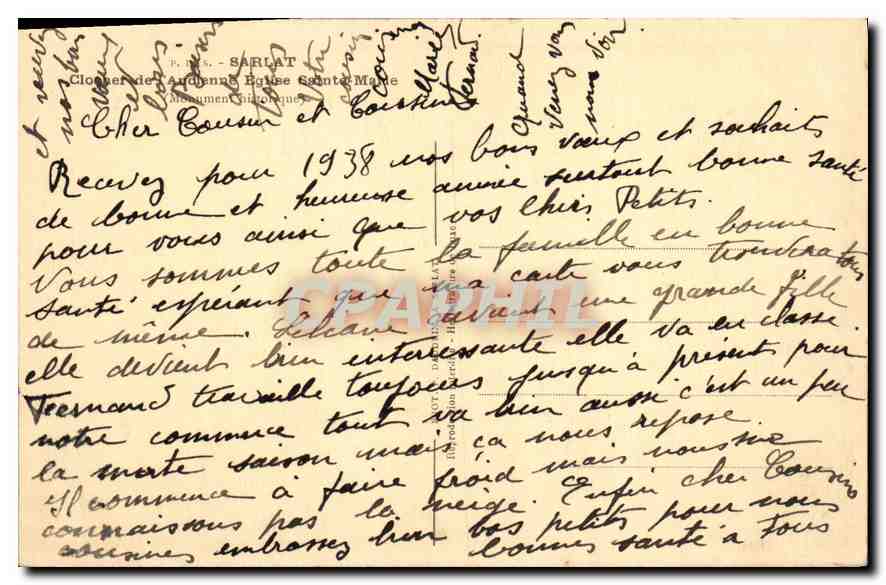 P. D. S. - SARLAT
Clocher de l'Ancienne Eglise Sainte-Marie
(Monument historique)
Cher Cousin et Cousine
Recevez pour 1938 nos bons vœux et souhaits
de bonne et heureuse année surtout bonne santé
pour vous ainsi que vos Chers Petits.
Nous sommes toute la famille en bonne
santé espérant que ma carte vous trouvera tous
de même. devient une grande fille
elle devient bien interressante elle va en classe.
Fernand travaille toujours jusqu'à présent pour
notre commerce tout va bien aussi c'est un peu
la morte saison mais ça nous repose
Il commence à faire froid mais nous ne
connaissons pas la neige. Enfin cher Cousins
cousines embrassez bien vos petits pour nous
bonnes santé à Tous
et recevez
nos bai
vous
et
bons
Baisers
de
vos
cousin
Marie
Fernand
Quand
venez vous
nous voir
CPAPHIL